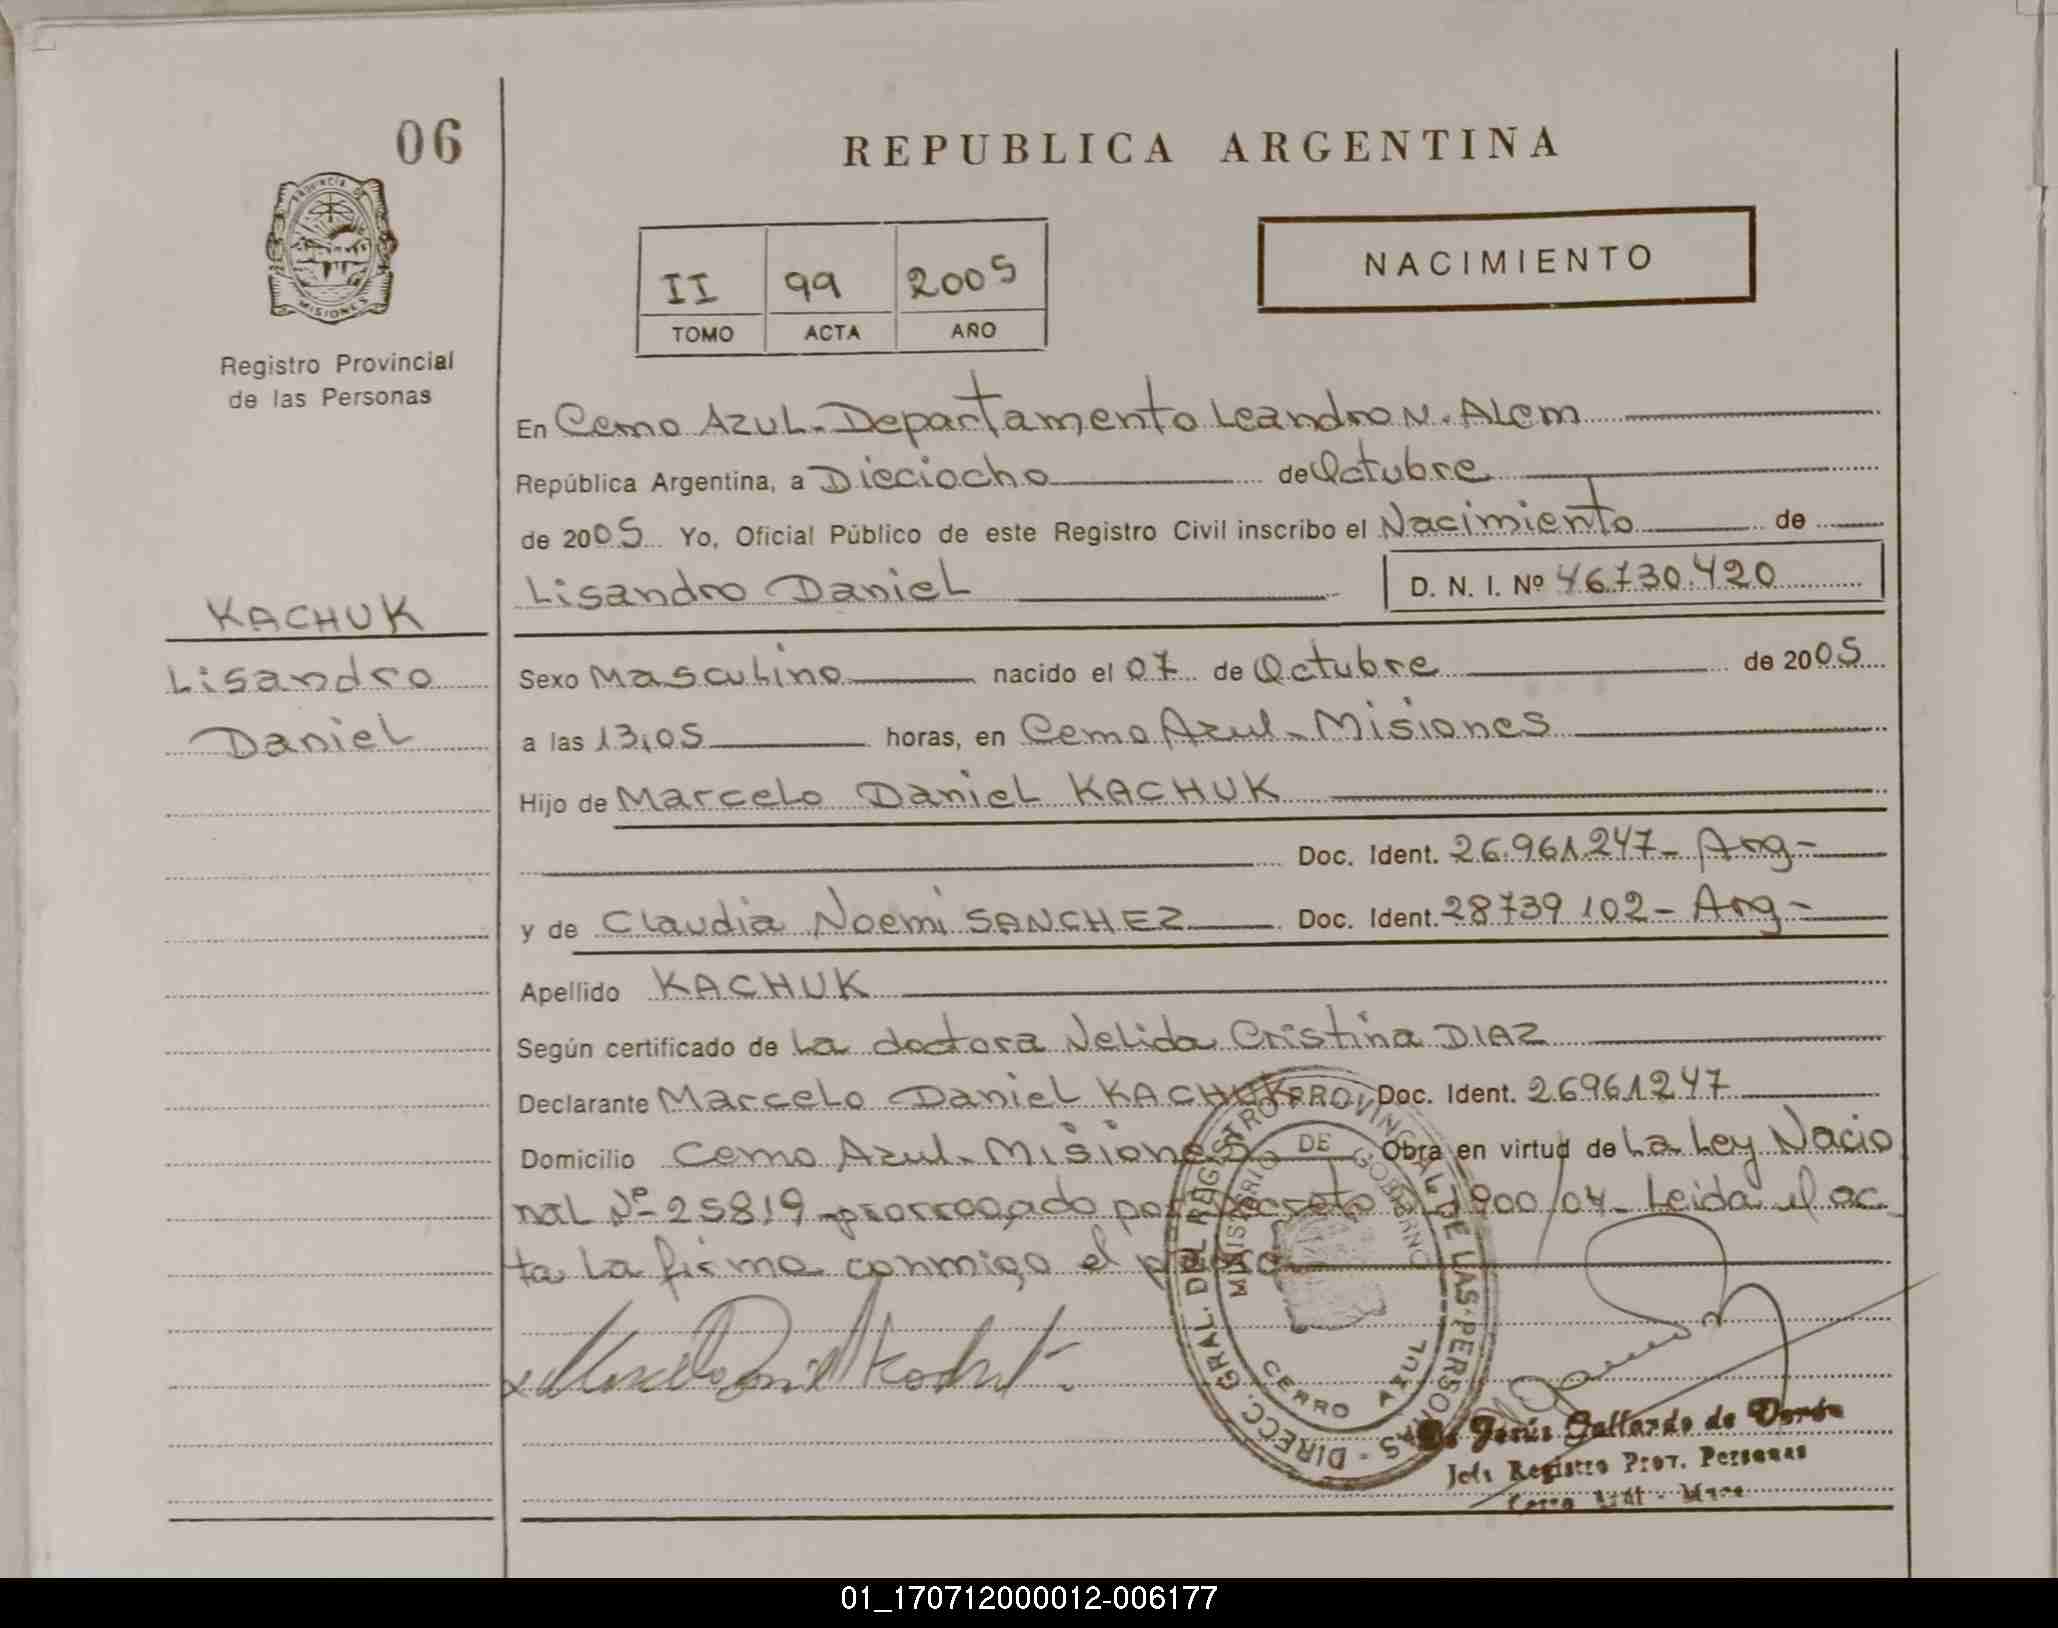 06
REPUBLICA ARGENTINA
PROVINCIA DE
MISIONES
Registro Provincial
de las Personas
II 99 2005
TOMO ACTA AÑO
NACIMIENTO
En Cerro Azul - Departamento Leandro N. Alem
República Argentina, a Dieciocho de Octubre
de 2005 Yo, Oficial Público de este Registro Civil inscribo el Nacimiento de
Lisandro Daniel D. N. I. Nº 46.730.420
KACHUK
Lisandro
Daniel
Sexo Masculino nacido el 07 de Octubre de 2005
a las 13,05 horas, en Cerro Azul - Misiones
Hijo de Marcelo Daniel KACHUK
Doc. Ident. 26.961.247 - Arg -
y de Claudia Noemi SANCHEZ Doc. Ident. 28739102 - Arg -
Apellido KACHUK
Según certificado de La doctora Nelida Cristina DIAZ
Declarante Marcelo Daniel KACHUK Doc. Ident. 26961247
Domicilio Cerro Azul - Misiones Obra en virtud de La Ley Nacio
nal Nº 25819 prorrogado por Decreto 1900/04 - Leida el ac
ta La firma conmigo el padre
Marcelo Daniel Kachuk
DIRECC. GRAL. DEL REGISTRO PROVINCIAL DE LAS PERSONAS
MINISTERIO DE GOBIERNO
CERRO AZUL
Jesús Gallardo de
Jefe Registro Prov. Personas
Cerro Azul - Mnes
01_170712000012-006177